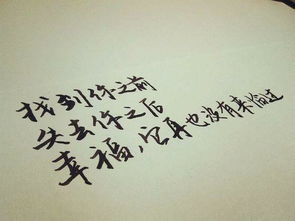 找到你之前
失去你之后
幸福、它再也没有来临过